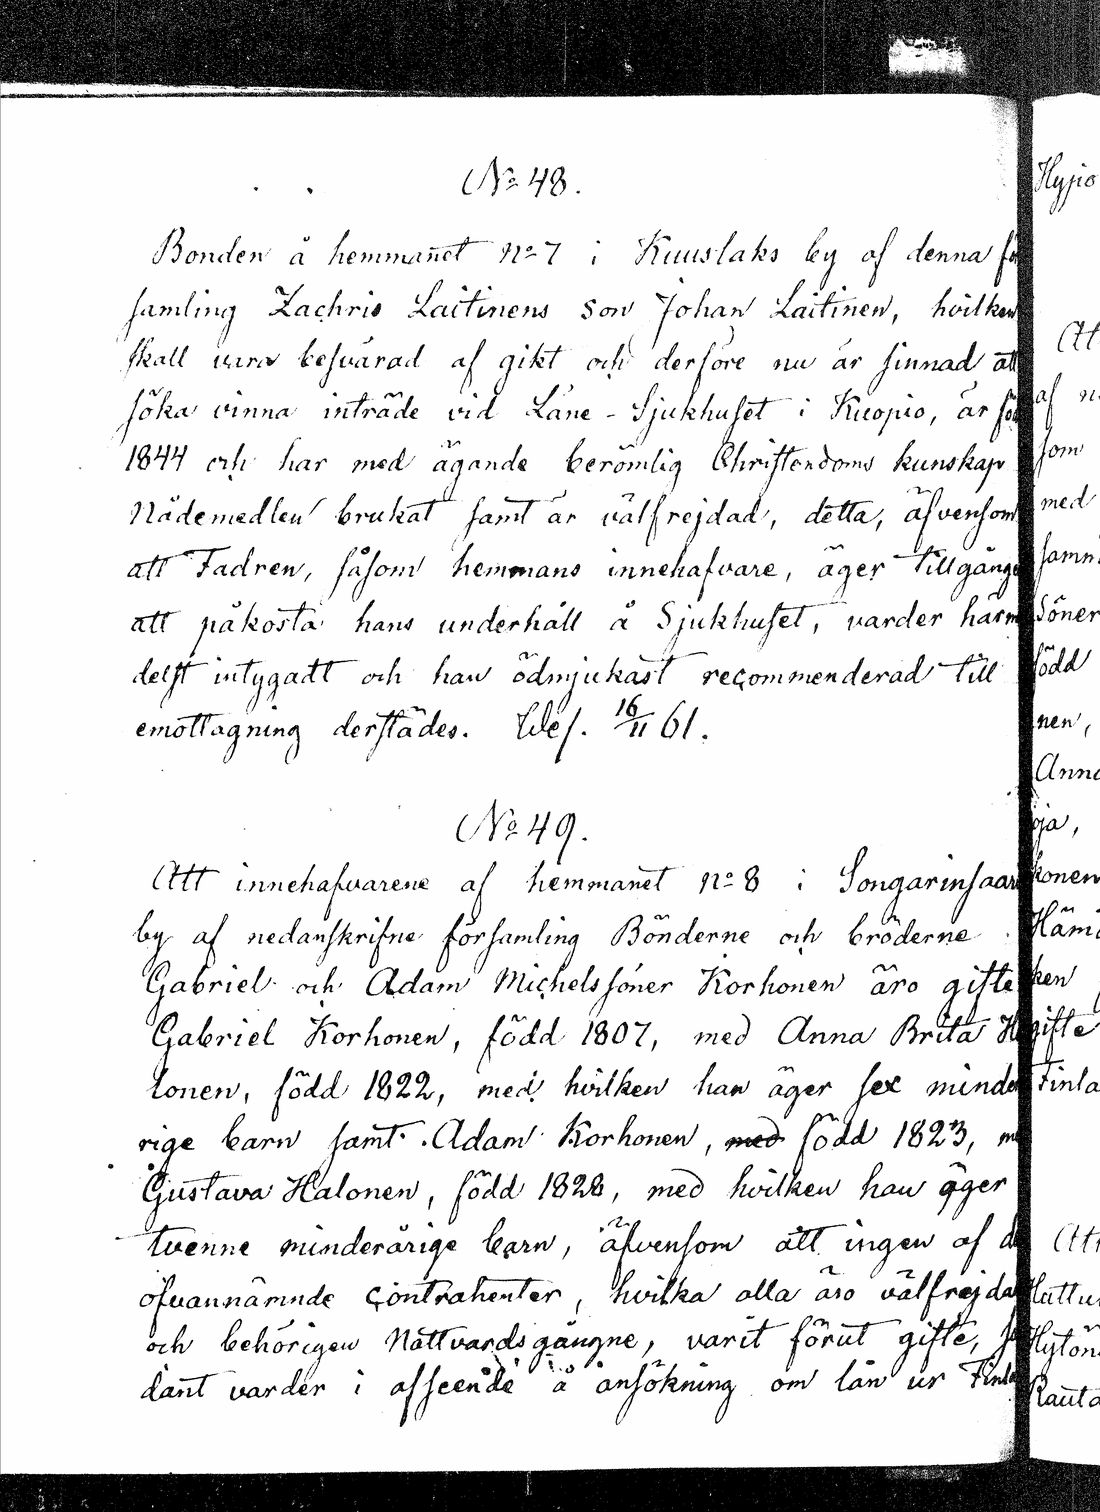 No 48.
Bonden å hemmanet No 7 i Kuuslaks by af denna fö
samling Zachris Laitinens son Johan Laitinen, hvilken
skall vara besvärad af gikt och derföre nu är sinnad att
söka vinna inträde vid Läne-Sjukhuset i Kuopio, är fö
1844 och har med ägande berömlig Christendoms kunskap
Nådemedlen brukat samt är välfrejdad, detta, äfvensom
att Fadren, såsom hemmans innehafvare, äger tillgång
att påkosta hans underhåll å Sjukhuset, varder härm
delst intygadt och han ödmjukast recommenderad till
emottagning derstädes. Idef. 16/11 61.
No 49.
Att innehafvarene af hemmanet No 8 i Songarinsaari
by af nedanskrifne församling Bönderne och bröderne
Gabriel och Adam Michelssöner Korhonen äro gifte
Gabriel Korhonen, född 1807, med Anna Brita H
lonen, född 1822, med hvilken han äger sex minde
rige barn samt Adam Korhonen, med född 1823, m
Gustava Halonen, född 1828, med hvilken han äger
tvenne minderårige barn, äfvensom att ingen af d
ofvannämnde contrahenter, hvilka alla äro välfrejda
och behörigen Nattvardsgångne, varit förut gifte, s
dant varder i afseende å ansökning om lån ur Finla
Hypio
Att
af n
som
med
samm
Söner
född
nen,
Anna
oja,
konen
Häm
ken
gifte
Finla
Att
Huttu
Hytön
Rauta